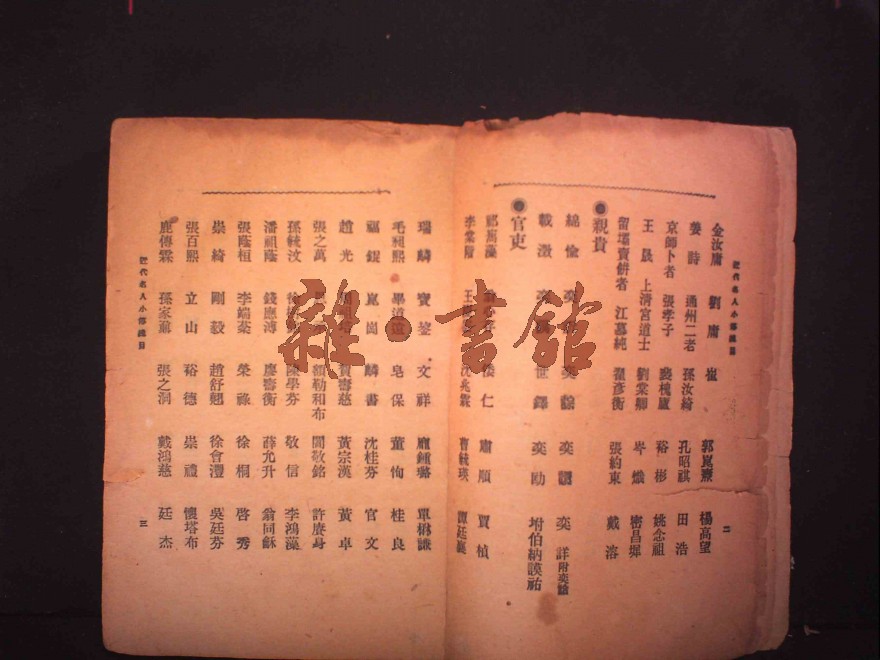 近代名人小傳總目
金汝庸 劉庸 崔 郭崑燾 楊高望
姜詩 通州二老 孫汝綺 孔昭祺 田浩
京師卜者 張孝子 裕彬 姚念祖
王晟 上清宮道士 劉棠卿 岑熾 密昌墀
留壩賣餅者 江慕純 瀏彥衡 張約東 戴溶
●親貴
綿愉 奕 奕 奕 奕詳附奕謚
載澂 奕 世鐸 奕劻 坿伯納謨祜
●官吏
祁寯藻 倭仁 肅順 賈楨
李棠階 王 沈兆霖 曹毓瑛 譚廷襄
二
瑞麟 寶鋆 文祥 龐鍾璐 單懋謙
毛昶熙 畢道遠 皂保 董恂 桂良
福錕 崑岡 麟書 沈桂芬 官文
趙光 賀壽慈 黃宗漢 黃卓
張之萬 額勒和布 閻敬銘 許庚身
孫毓汶 徐 陳學棻 敬信 李鴻藻
潘祖蔭 錢應溥 廖壽衡 薛允升 翁同龢
張蔭桓 李端棻 榮祿 徐桐 啓秀
崇綺 剛毅 趙舒翹 徐會灃 吳廷芬
張百熙 立山 裕德 崇禮 懷塔布
鹿傳霖 孫家鼐 張之洞 戴鴻慈 廷杰
近代名人小傳總目
三
雜·書館